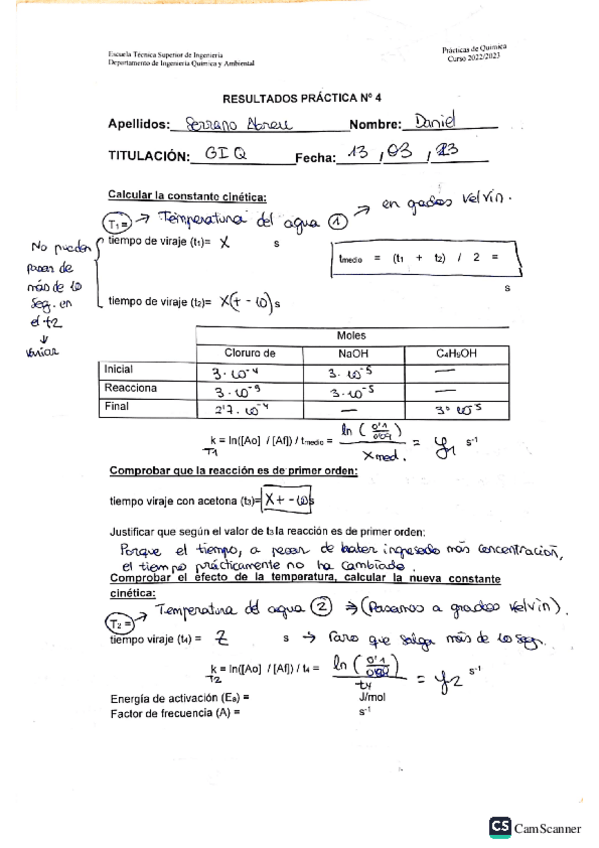 Escuela Técnica Superior de Ingeniería
Departamento de Ingeniería Química y Ambiental
Prácticas de Química
Curso 2022/2023
RESULTADOS PRÁCTICA Nº 4
Apellidos: Serrano Abreu Nombre: Daniel
TITULACIÓN: GIQ Fecha: 13 / 03 / 23
Calcular la constante cinética:
T₁ = → Temperatura del agua ① → en grados kelvin.
No pueden pasar de más de 10 seg. en el t2
↓
variar
tiempo de viraje (t₁)= X s
tmedio = (t₁ + t₂) / 2 =
s
tiempo de viraje (t₂)= X(+ - 10) s
Moles
Cloruro de NaOH C₄H₉OH
Inicial 3·10⁻⁴ 3·10⁻⁵ —
Reacciona 3·10⁻⁵ 3·10⁻⁵
Final 2'7·10⁻⁴ — 3·10⁻⁵
k = ln([Ao] / [Af]) / tmedio = ln (0'1 / 0'09) / Xmed. = y₁ s⁻¹
T1
Comprobar que la reacción es de primer orden:
tiempo viraje con acetona (t₃)= X + - 10 s
Justificar que según el valor de t₃ la reacción es de primer orden:
Porque el tiempo, a pesar de haber ingresado más concentración,
el tiempo prácticamente no ha cambiado.
Comprobar el efecto de la temperatura, calcular la nueva constante
cinética:
T₂ = → Temperatura del agua ② ⇒ (Pasamos a grados kelvin).
tiempo viraje (t₄) = Z s → Para que salga más de 10 seg.
k = ln([Ao] / [Af]) / t₄ = ln (0'1 / 0'09) / t4 = y₂ s⁻¹
T2
Energía de activación (Eₐ) = J/mol
Factor de frecuencia (A) = s⁻¹
CS CamScanner